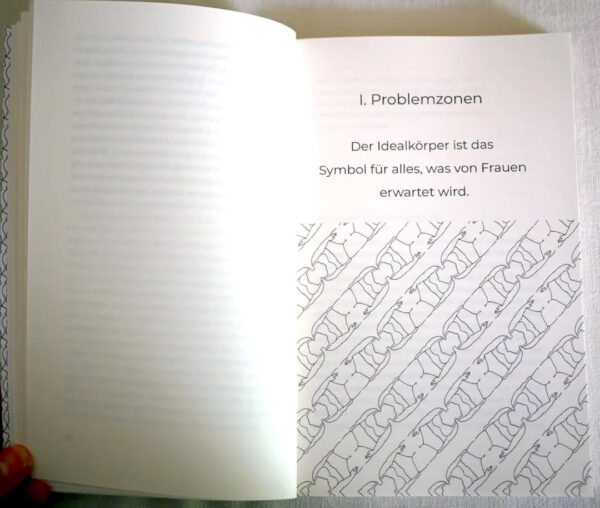 I. Problemzonen
Der Idealkörper ist das
Symbol für alles, was von Frauen
erwartet wird.